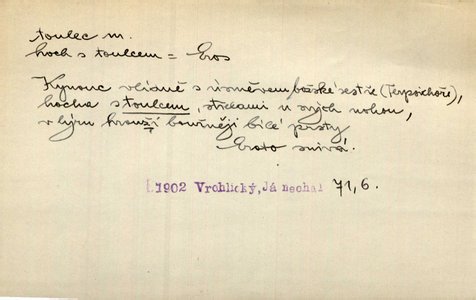 toulec m.
hoch s toulcem = Eros
Kynouc vlídně s úsměvem božské sestře (Terpsichoře),
hocha s toulcem, střelami u svých nohou,
v lýru hrouží bouřněji bílé prsty
Erato snivá.
1902 Vrchlický, Já nechal 71,6.